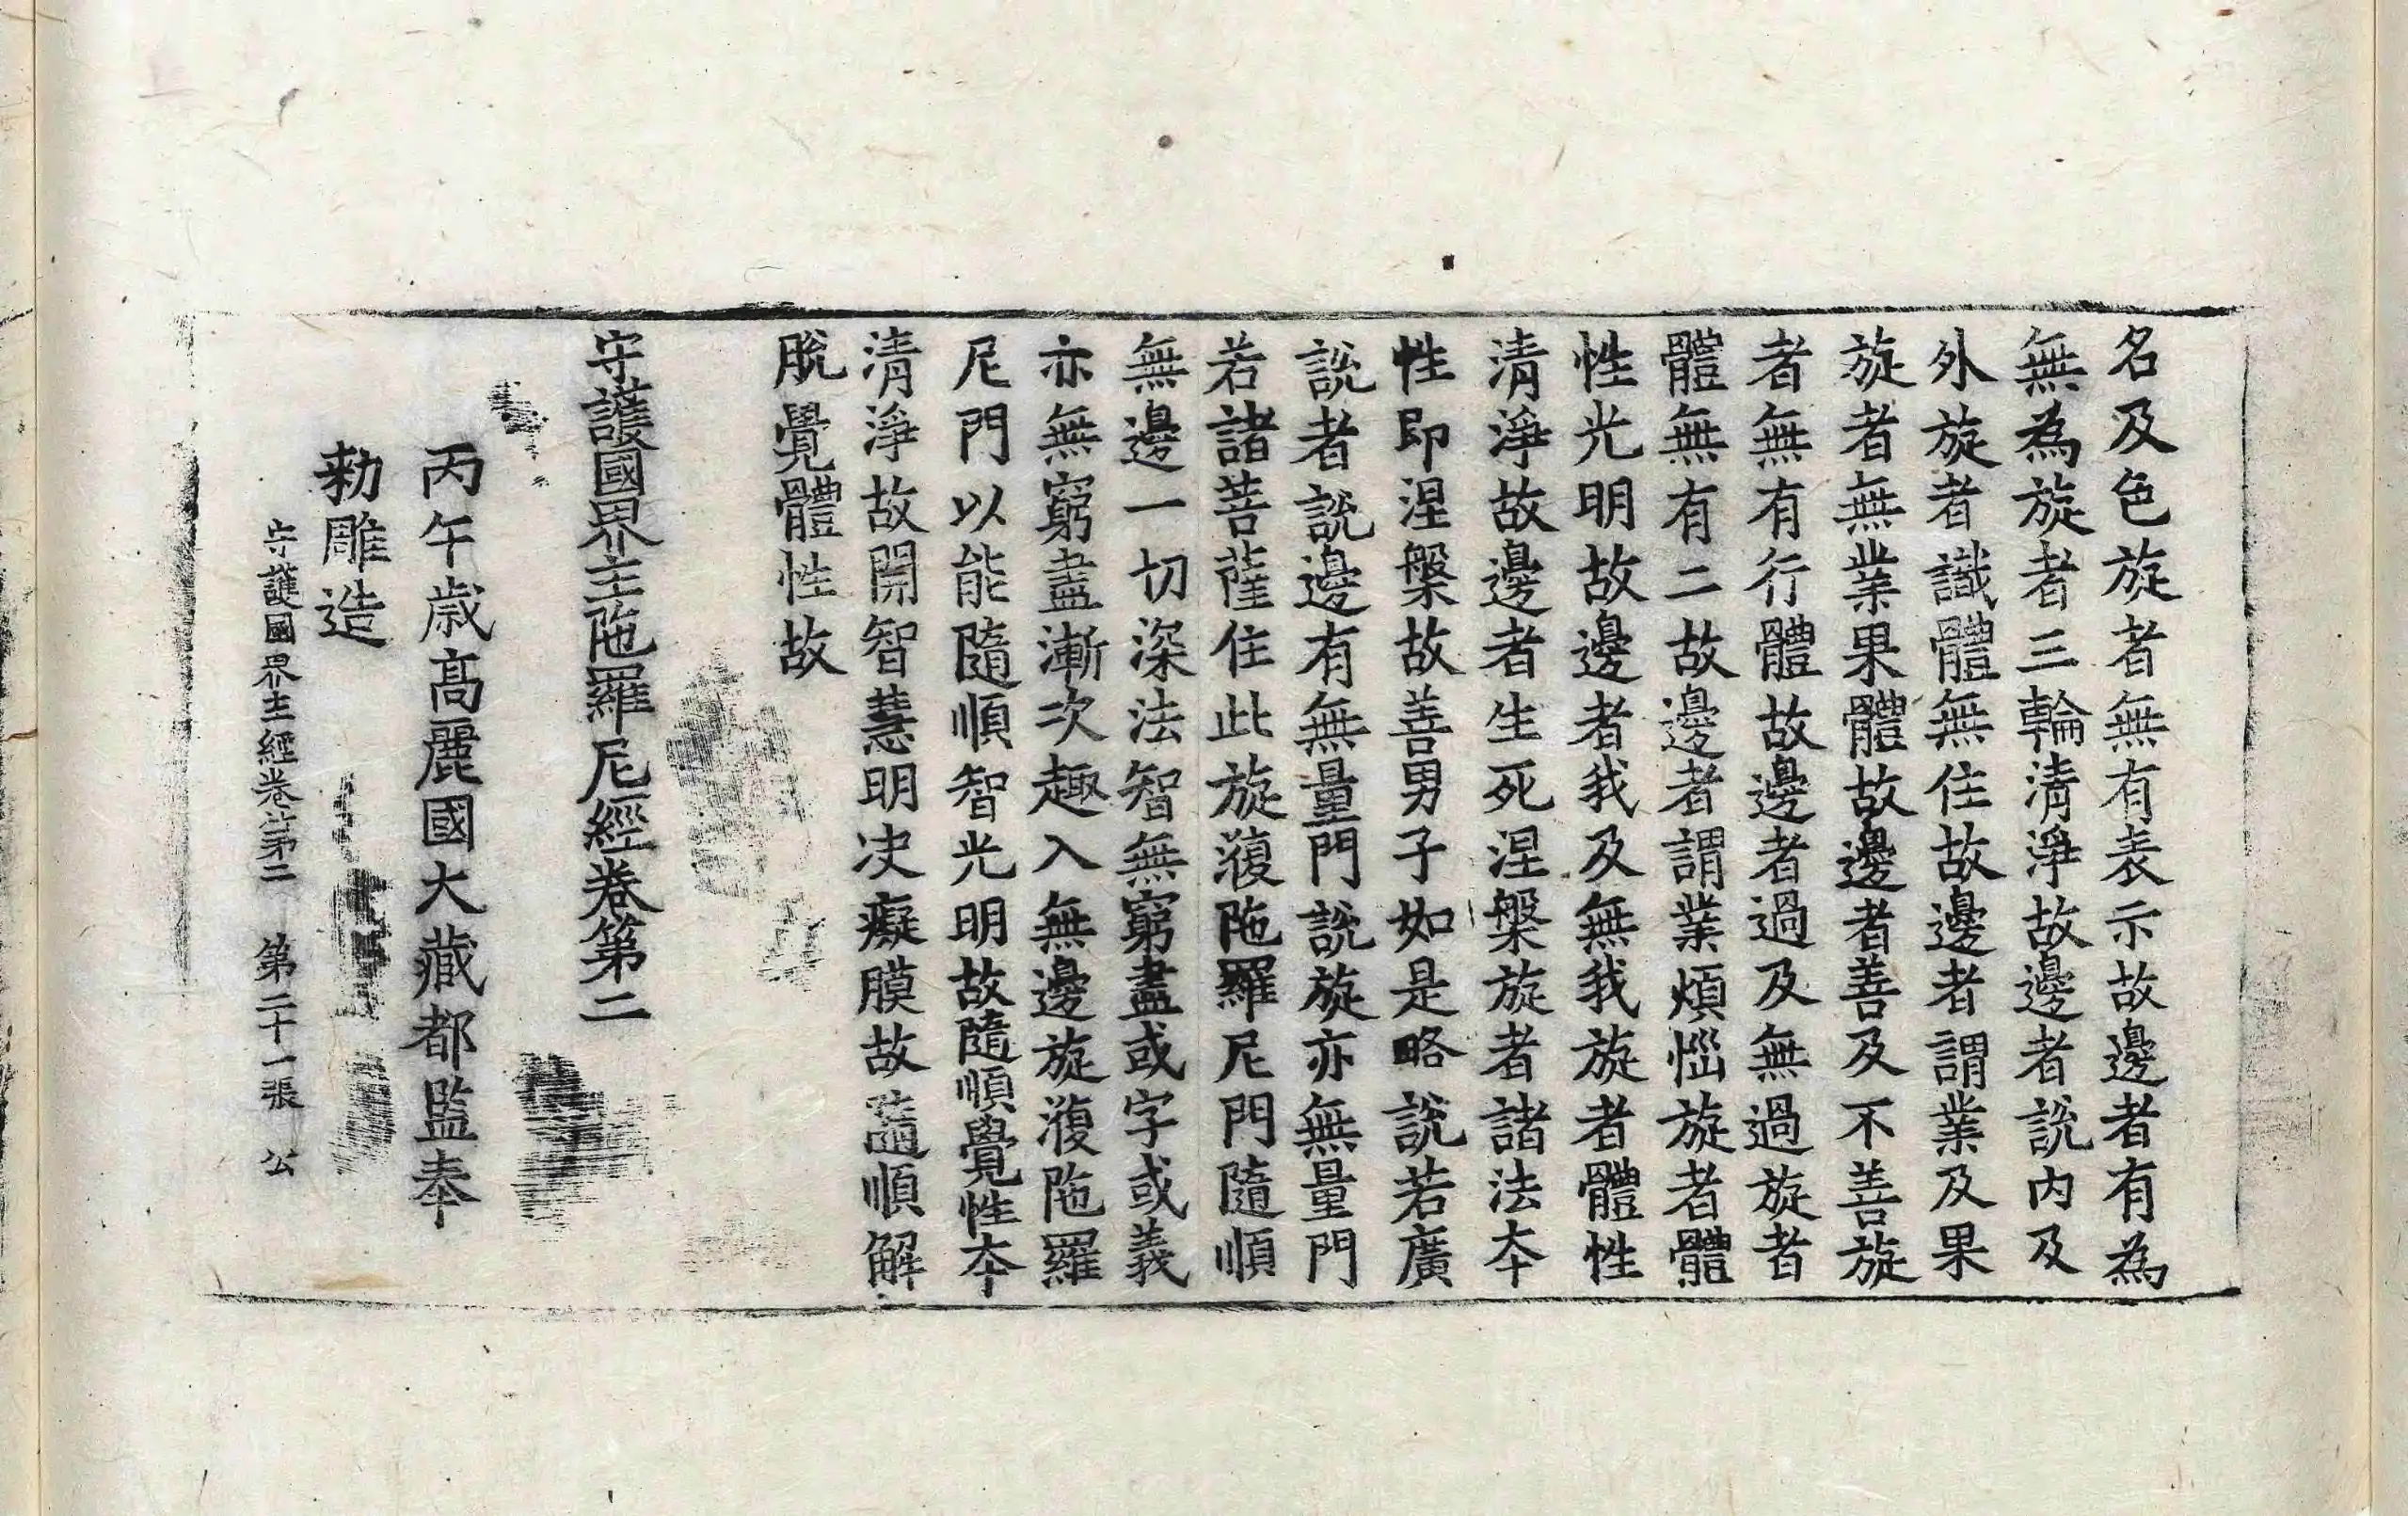 名及色旋者無有表示故邊者有為
無為旋者三輪清淨故邊者說內及
外旋者識體無住故邊者謂業及果
旋者無業果體故邊者善及不善旋
者無有行體故邊者過及無過旋者
體無有二故邊者謂業煩惱旋者體
性光明故邊者我及無我旋者體性
清淨故邊者生死涅槃旋者諸法夲
性即涅槃故善男子如是略說若廣
說者說邊有無量門說旋亦無量門
若諸菩薩住此旋澓陁羅尼門隨順
無邊一切深法智無窮盡或字或義
亦無窮盡漸次趣入無邊旋澓陁羅
尼門以能隨順智光明故隨順覺性夲
清淨故開智慧明决癡膜故隨順解
脫覺體性故
守護國界主陁羅尼經卷第二
丙午歲高麗國大藏都監奉
勑雕造
守護國界主經卷第二 第二十一張 公